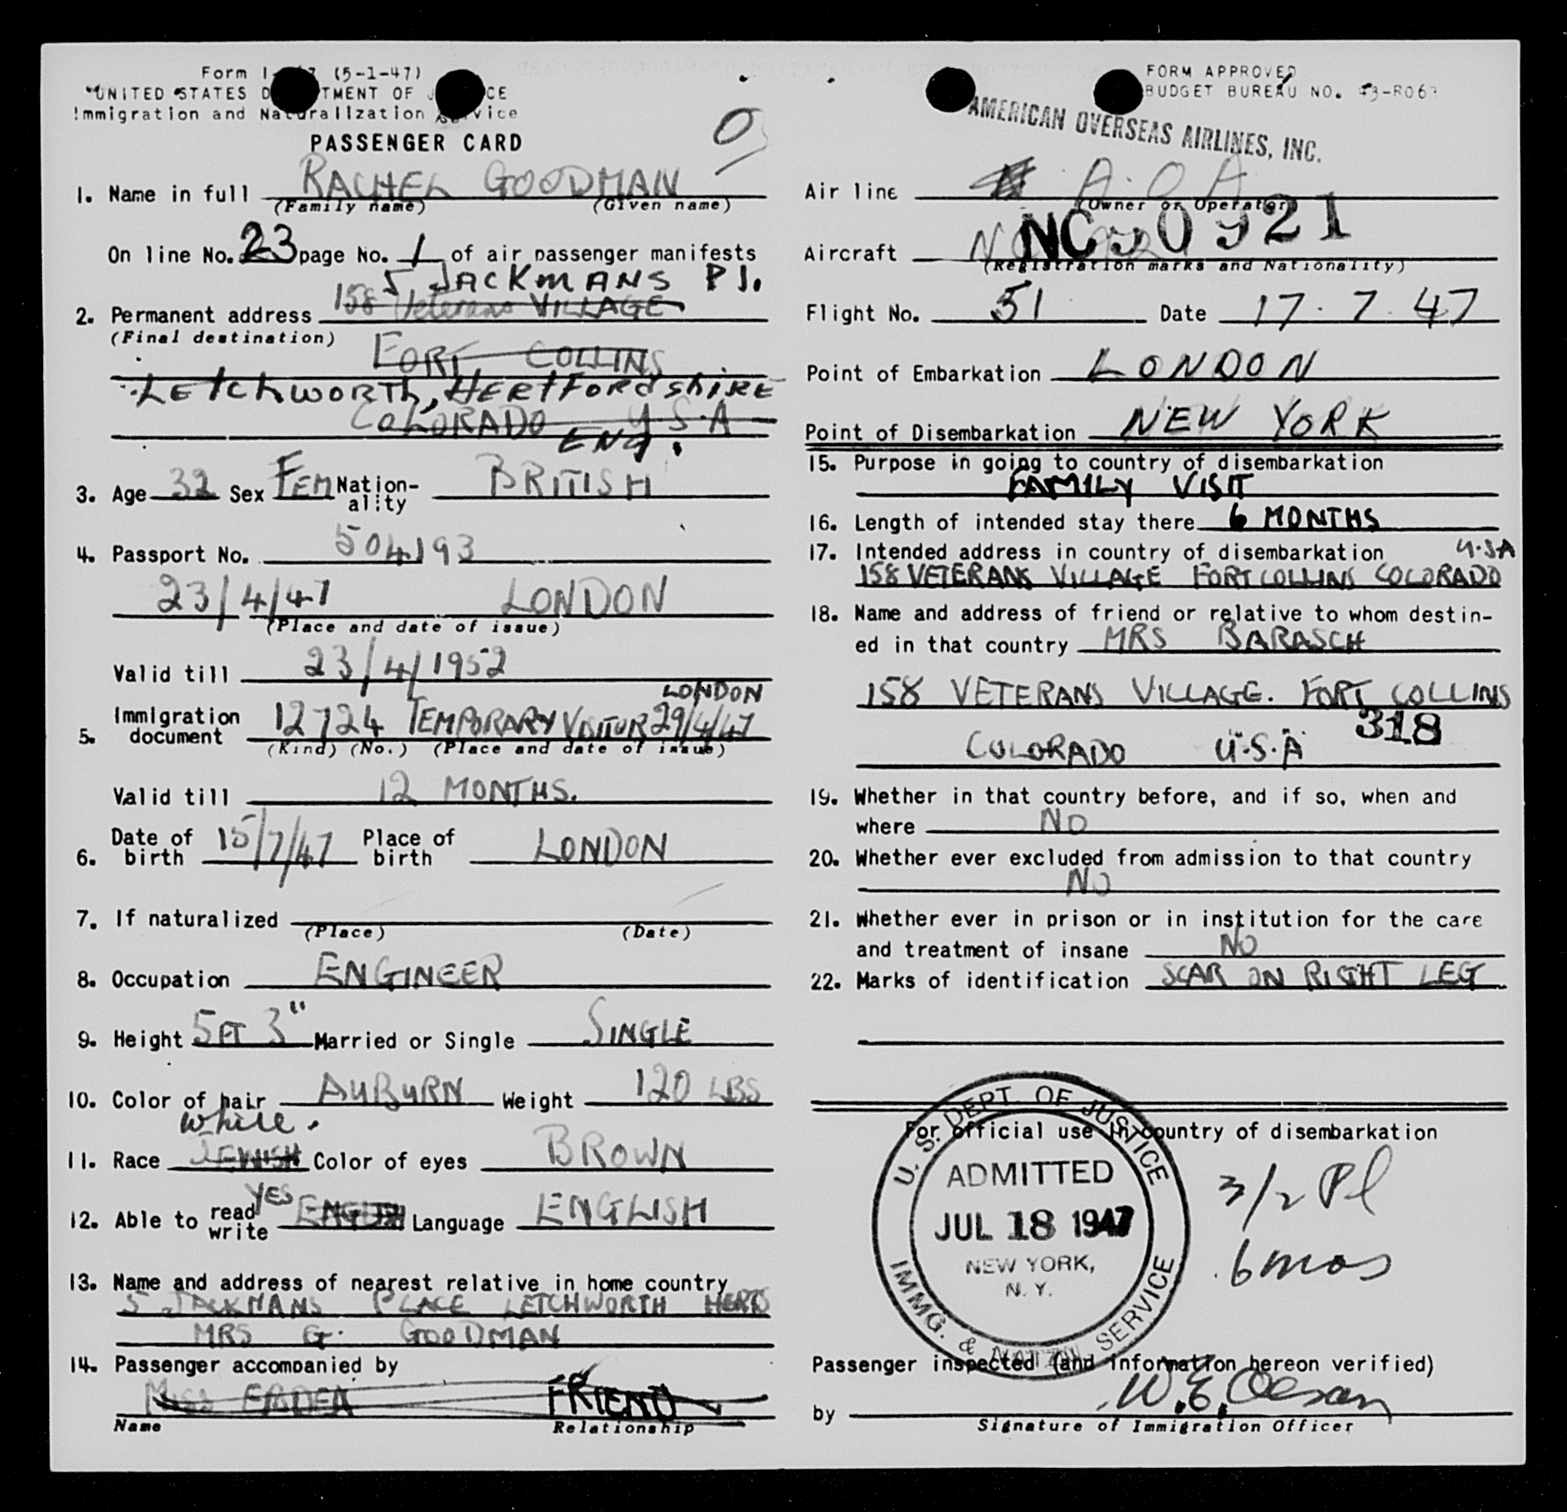 Form I- (5-1-47)
UNITED STATES D TMENT OF J CE
Immigration and Naturalization Service
PASSENGER CARD
1. Name in full RACHEL GOODMAN
(Family name) (Given name)
On line No. 23 page No. 1 of air passenger manifests
5 JACKMANS Pl.
2. Permanent address 158 Veterans VILLAGE
(Final destination)
FORT COLLINS
LETCHWORTH, HERTFORDSHIRE
COLORADO U.S.A
ENG.
3. Age 32 Sex FEM Nation-ality BRITISH
4. Passport No. 504193
23/4/47 LONDON
(Place and date of issue)
Valid till 23/4/1952
LONDON
5. Immigration document 12724 TEMPORARY VISITOR 29/4/47
(Kind) (No.) (Place and date of issue)
Valid till 12 MONTHS.
6. Date of birth 15/7/47 Place of birth LONDON
7. If naturalized
(Place) (Date)
8. Occupation ENGINEER
9. Height 5FT 3" Married or Single SINGLE
10. Color of hair AUBURN Weight 120 LBS
White.
11. Race JEWISH Color of eyes BROWN
YES
12. Able to read write ENGLISH Language ENGLISH
13. Name and address of nearest relative in home country
5 JACKMANS PLACE LETCHWORTH HERTS
MRS G. GOODMAN
14. Passenger accompanied by
MISS FRIEND
Name Relationship
FORM APPROVED
BUDGET BUREAU NO. 43-R063
AMERICAN OVERSEAS AIRLINES, INC.
Air line A.O.A
(Owner or Operator)
Aircraft NC 90921
(Registration marks and Nationality)
Flight No. 51 Date 17.7.47
Point of Embarkation LONDON
Point of Disembarkation NEW YORK
15. Purpose in going to country of disembarkation
FAMILY VISIT
16. Length of intended stay there 6 MONTHS
17. Intended address in country of disembarkation U.SA
158 VETERANS VILLAGE FORT COLLINS COLORADO
18. Name and address of friend or relative to whom destin-
ed in that country MRS BARASCH
158 VETERANS VILLAGE. FORT COLLINS
318
COLORADO U.S.A
19. Whether in that country before, and if so, when and
where NO
20. Whether ever excluded from admission to that country
NO
21. Whether ever in prison or in institution for the care
and treatment of insane NO
22. Marks of identification SCAR ON RIGHT LEG
For official use in country of disembarkation
U. S. DEPT. OF JUSTICE
ADMITTED
JUL 18 1947
NEW YORK,
N. Y.
IMMG. & NATZN. SERVICE
3/2 Pl
6 mos
Passenger inspected (and information hereon verified)
by W.E. Olesan
Signature of Immigration Officer